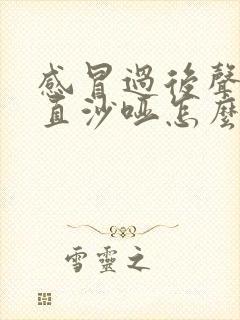 感冒過後聲
直沙啞怎麼
雪靈之